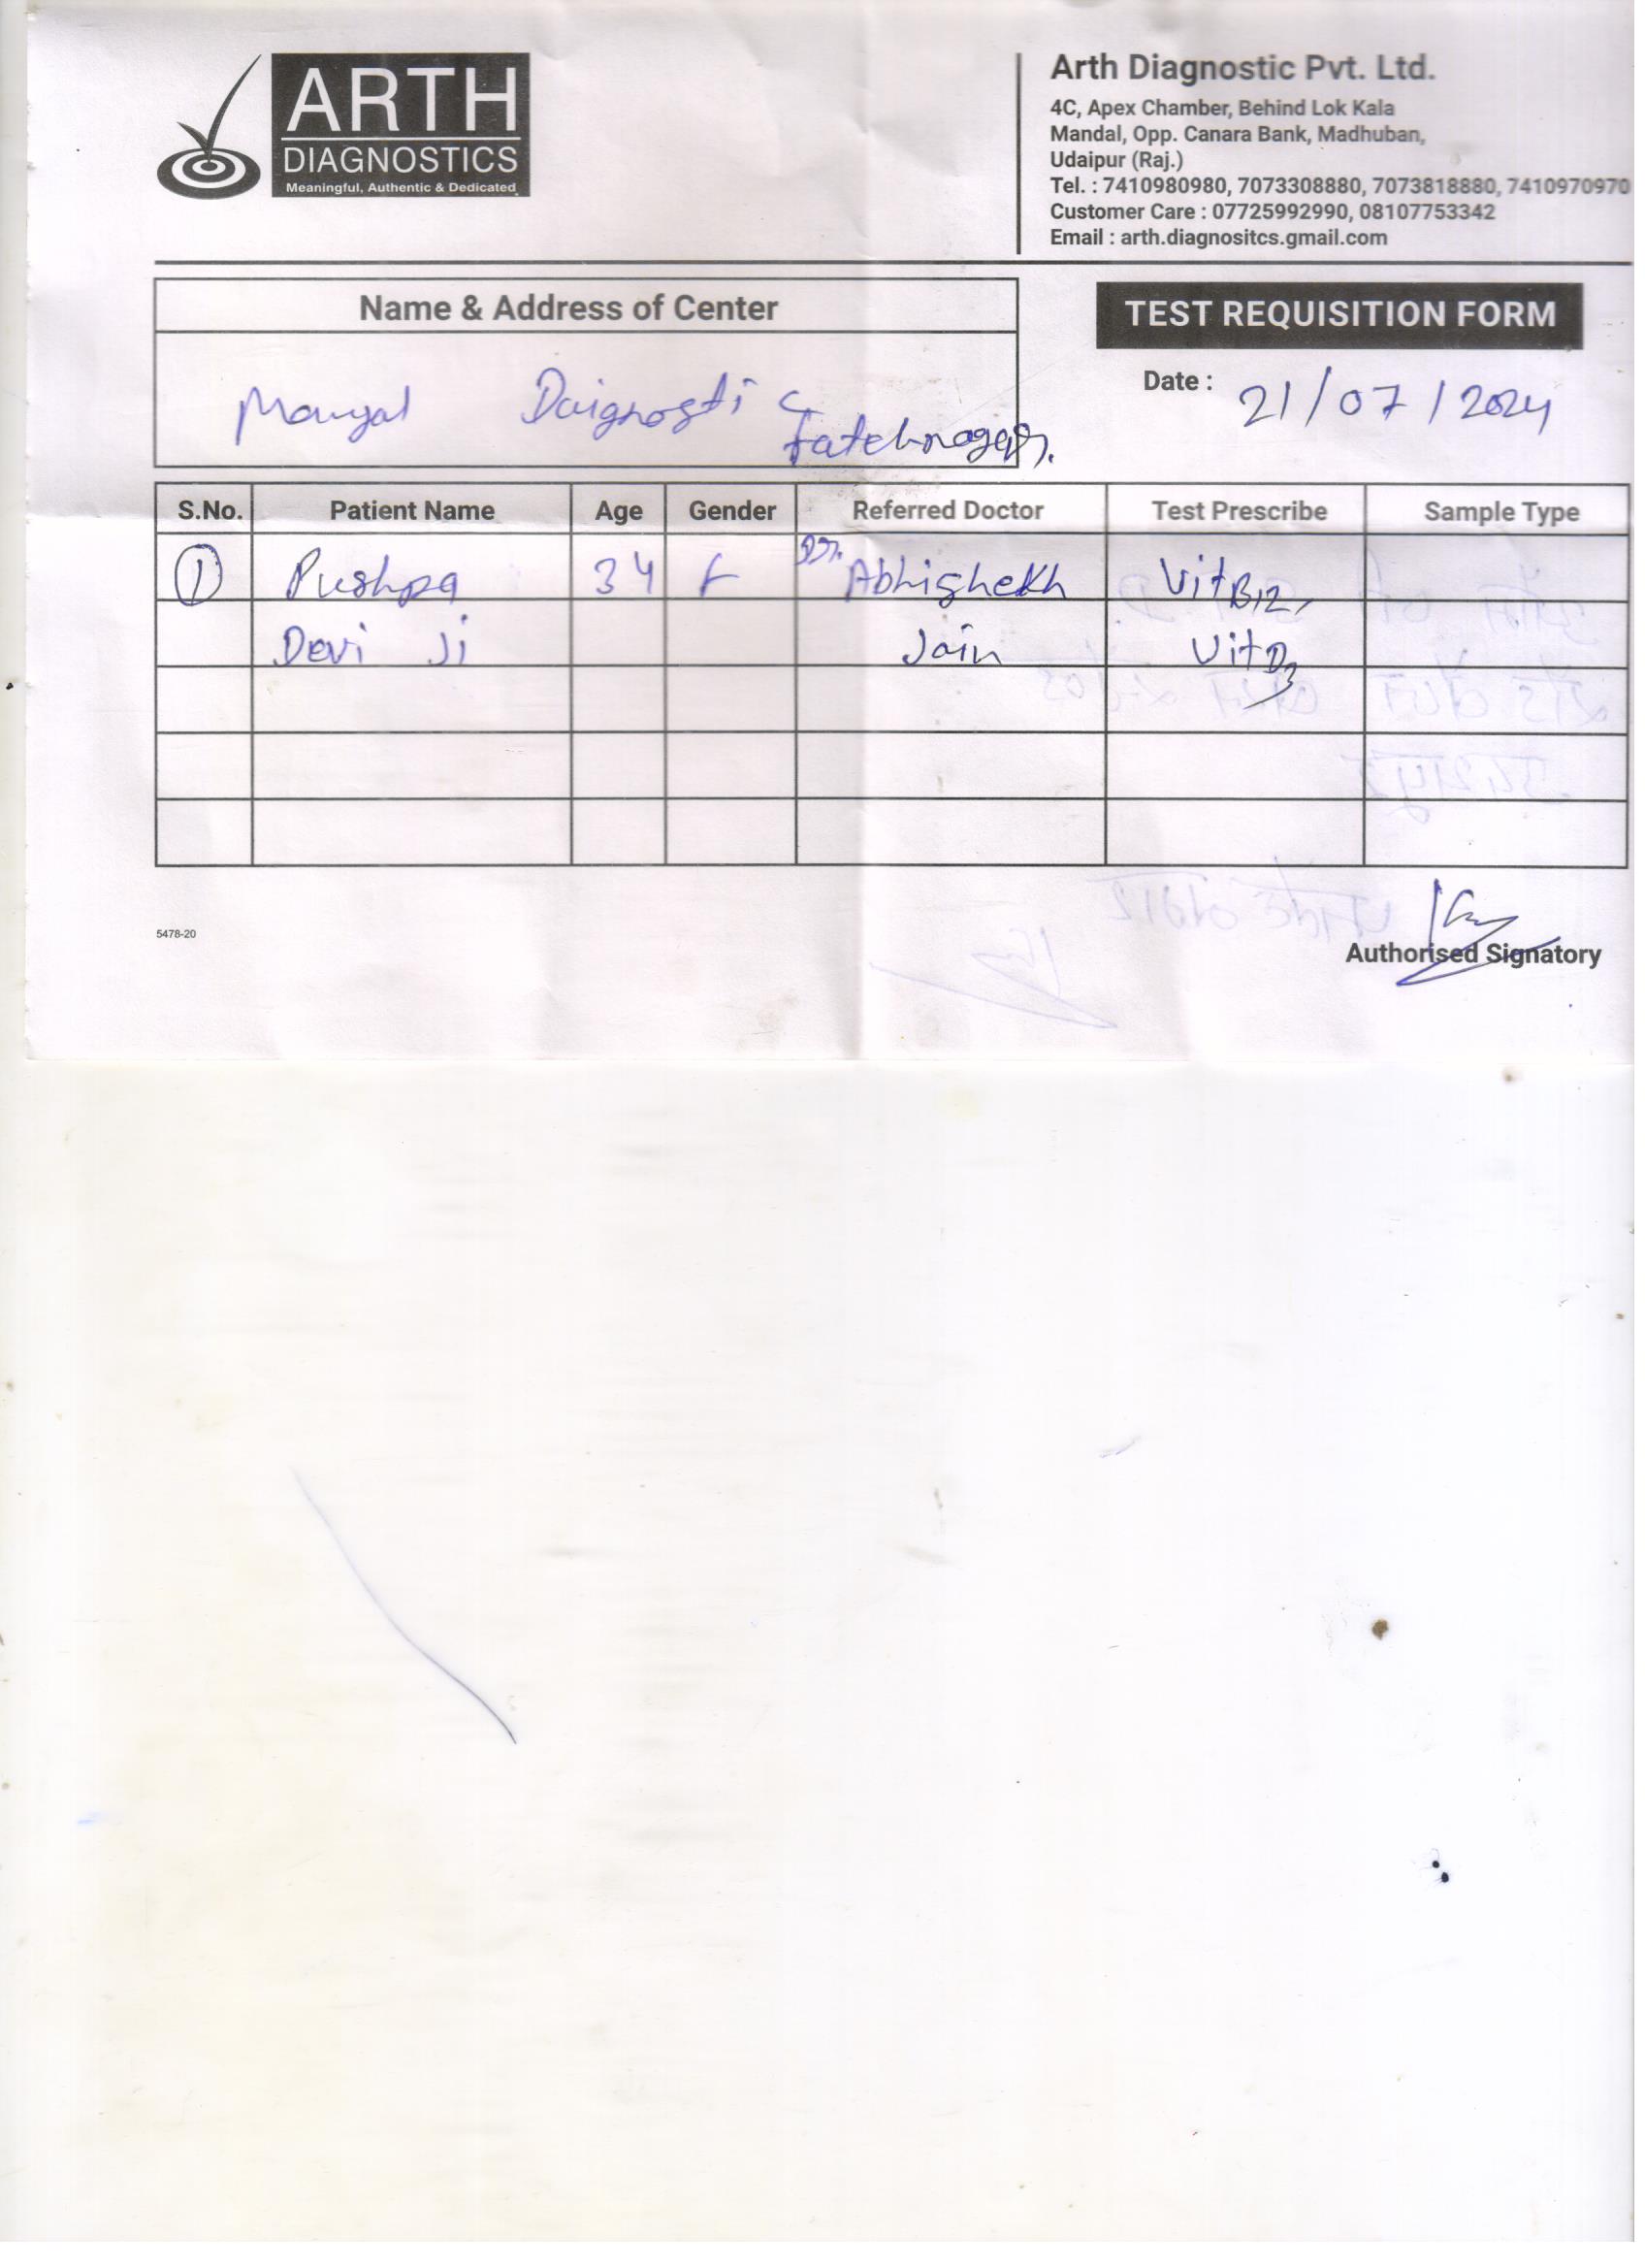 ARTH
DIAGNOSTICS
Meaningful, Authentic & Dedicated
Arth Diagnostic Pvt. Ltd.
4C, Apex Chamber, Behind Lok Kala
Mandal, Opp. Canara Bank, Madhuban,
Udaipur (Raj.)
Tel. : 7410980980, 7073308880, 7073818880, 7410970970
Customer Care : 07725992990, 08107753342
Email : arth.diagnositcs.gmail.com
Name & Address of Center
TEST REQUISITION FORM
Mangal Daignostic
Fatehnagar.
Date : 21/07/2024
S.No. Patient Name Age Gender Referred Doctor Test Prescribe Sample Type
1 Pushpa 34 F Dr. Abhishekh Vit B12,
Devi Ji Jain Vit D3
5478-20
Authorised Signatory